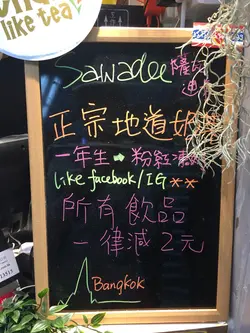 like tea
Sawadee
正宗地道奶
一年生➡粉紅凍
like facebook/IG**
所有飲品
一律減2元
Bangkok